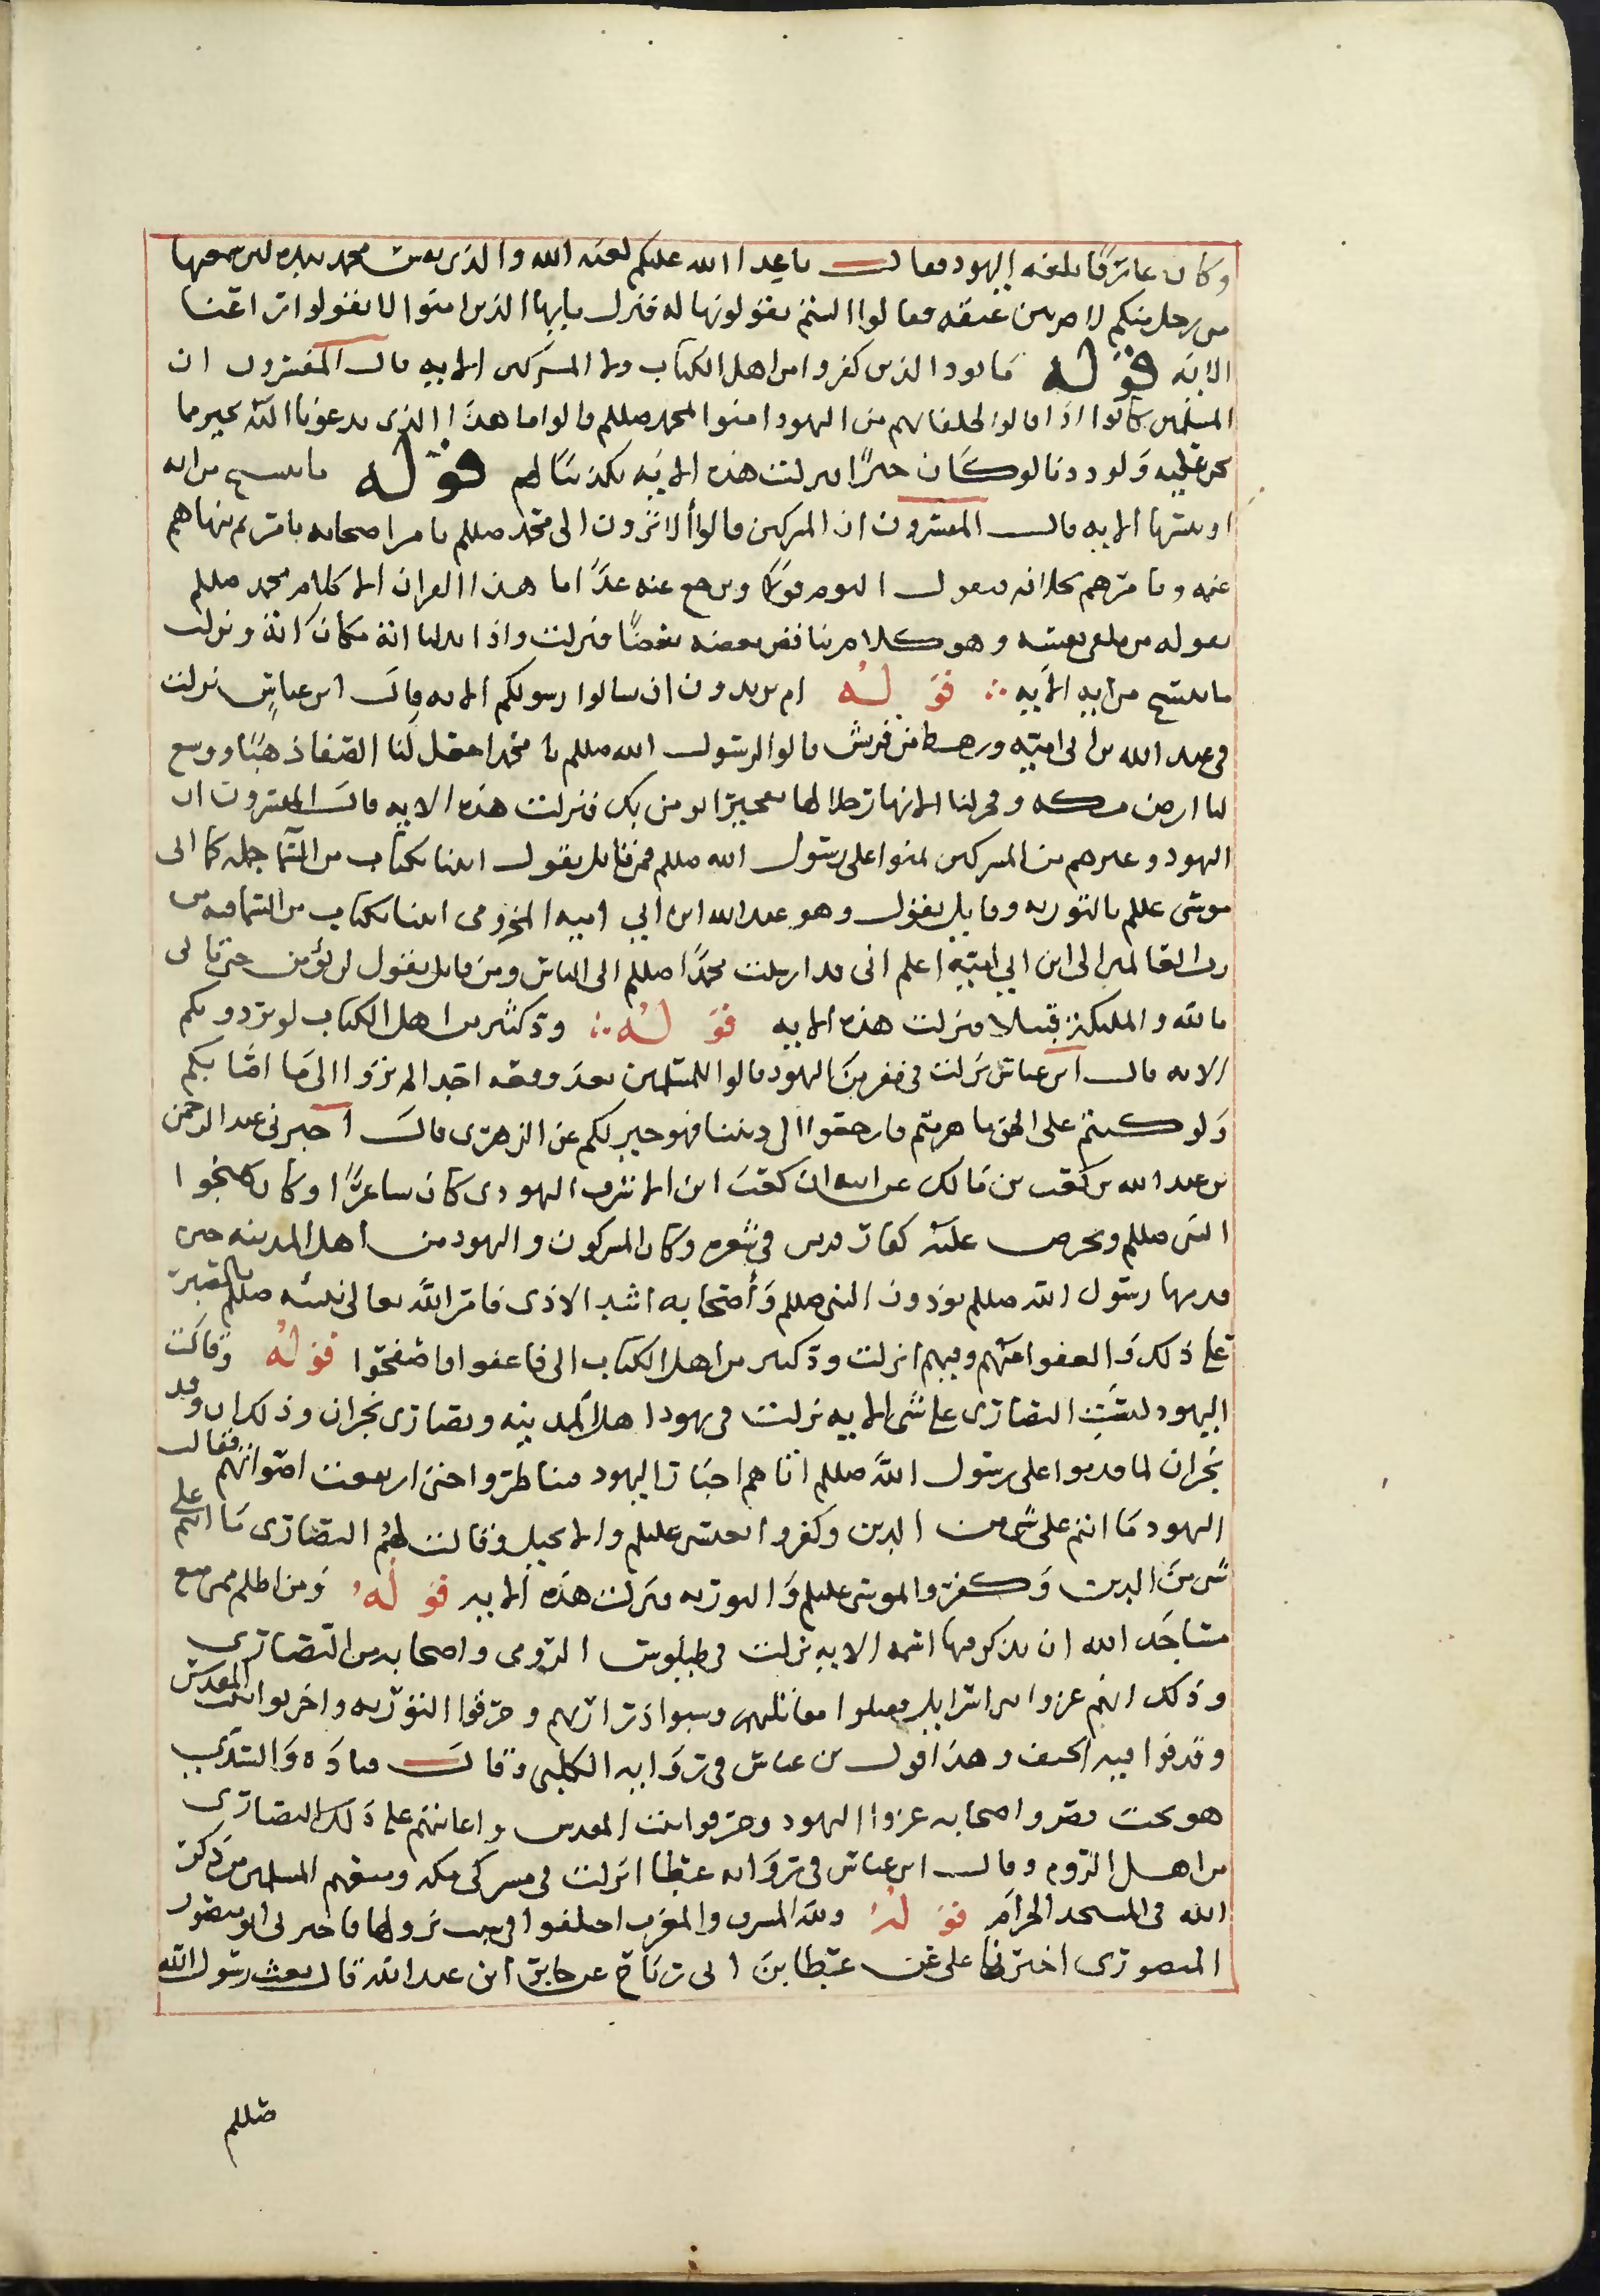 وكان عارفا بلغة اليهود فقال يا اعدا الله عليكم لعنة الله والذي نفس محمد بيده لئن سمعتها
من رجل منكم لاضربن عنقه فقالوا الستم تقولونها له فنزل يايها الذين امنوا لا تقولوا راعنا
الاية قوله ما يود الذين كفروا من اهل الكتاب ولا المشركين الاية قال المفسرون ان
المسلمين كانوا اذا قالوا لحلفايهم من اليهود امنوا بمحمد صللم قالوا ما هذا الذي تدعونا اليه بخير مما
نحن عليه ولوددنا لو كان خيرا فنزلت هذه الاية تكذيبا لهم قوله ما ننسخ من اية
او ننسها الاية قال المفسرون ان المشركين قالوا ألا ترون الى محمد صللم يامر اصحابه بامر ثم ينهاهم
عنه ويامرهم بخلافه ويقول اليوم قولا ويرجع عنه غدا ما هذا القران الا كلام محمد صللم
يقوله من تلقى نفسه وهو كلام يناقض بعضه بعضا فنزلت واذا بدلنا اية مكان اية ونزلت
ما ننسخ من اية الاية قوله ام تريدون ان تسالوا رسولكم الاية قال ابن عباس نزلت
في عبد الله بن ابي امية ورهط من قريش قالوا لرسول الله صللم يا محمد اجعل لنا الصفا ذهبا ووسع
لنا ارض مكه وفجر لنا الانهار خلالها تفجيرا نومن بك فنزلت هذه الاية قال المفسرون ان
اليهود وغيرهم من المشركين تمنوا على رسول الله صللم فمن قايل يقول ايتنا بكتاب من السما جمله كما اتى
موسى عللم بالتوريه وقايل يقول وهو عبد الله ابن ابي امية المخزومي ايتنا بكتاب من السما فيه من
رب العالمين الى ابن ابي امية اعلم انى قد ارسلت محمدا صللم الى الناس ومن قايل يقول لن نؤمن حتى تاتى
بالله والمليكه قبيلا فنزلت هذه الاية قوله ود كثير من اهل الكتاب لو يردونكم
الاية قال ابن عباس نزلت في نفر من اليهود قالوا للمسلمين بعد وقعه احد الم تروا الى ما اصابكم
ولو كنتم على الحق ما هزمتم فارجعوا الى ديننا فهو خير لكم عن الزهرى قال اخبرني عبد الرحمن
بن عبد الله بن كعب بن مالك عن ابيه ان كعب ابن الاشرف اليهودى كان شاعرا وكان يهجوا
النبي صللم ويحرض عليه كفار قريش في شعره وكان المشركون واليهود من اهل المدينه حين
قدمها رسول الله صللم يوذون النبي صللم وأصحابه اشد الاذى فامر الله تعالى نبيه صللم بالصبر
على ذلك والعفو عنهم وفيهم انزلت ود كثير من اهل الكتاب الى فاعفوا واصفحوا قوله وقالت
اليهود ليست النصارى على شى الاية نزلت فى يهود اهل المدينه ونصارى نجران وذلك ان وفد
نجران لما قدموا على رسول الله صللم اتاهم احبار اليهود فتناظروا حتى ارتفعت اصواتهم فقالت
اليهود ما انتم على شى من الدين وكفروا بعيسى عليلم والانجيل وقالت لهم النصارى ما انتم على
شى من الدين وكفروا بموسى عليلم والتوريه فنزلت هذه الاية قوله ومن اظلم ممن منع
مساجد الله ان يذكر فيها اسمه الاية نزلت في ططلوس الرومى واصحابه من النصارى
وذلك انهم غزوا بنى اسرايل فقتلوا مقاتليهم وسبوا ذراريهم وحرقوا التوريه واخربوا بيت المقدس
وقذفوا فيه الجيف وهذا قول بن عباس في رواية الكلبى وقال قتاده والسدى
هو بخت نصر واصحابه غزوا اليهود وخربوا بيت المقدس واعانتهم على ذلك النصارى
من اهل الروم وقال ابن عباس في رواية عطا انزلت في مشركى مكه ومنعهم المسلمين من ذكر
الله فى المسجد الحرام قوله ولله المشرق والمغرب اختلفوا في سبب نزولها فاخبرنى ابو منصور
المنصورى اخبرنا على بن عطا بن ابى رباح عن جابر ابن عبد الله قال بعث رسول الله
صللم